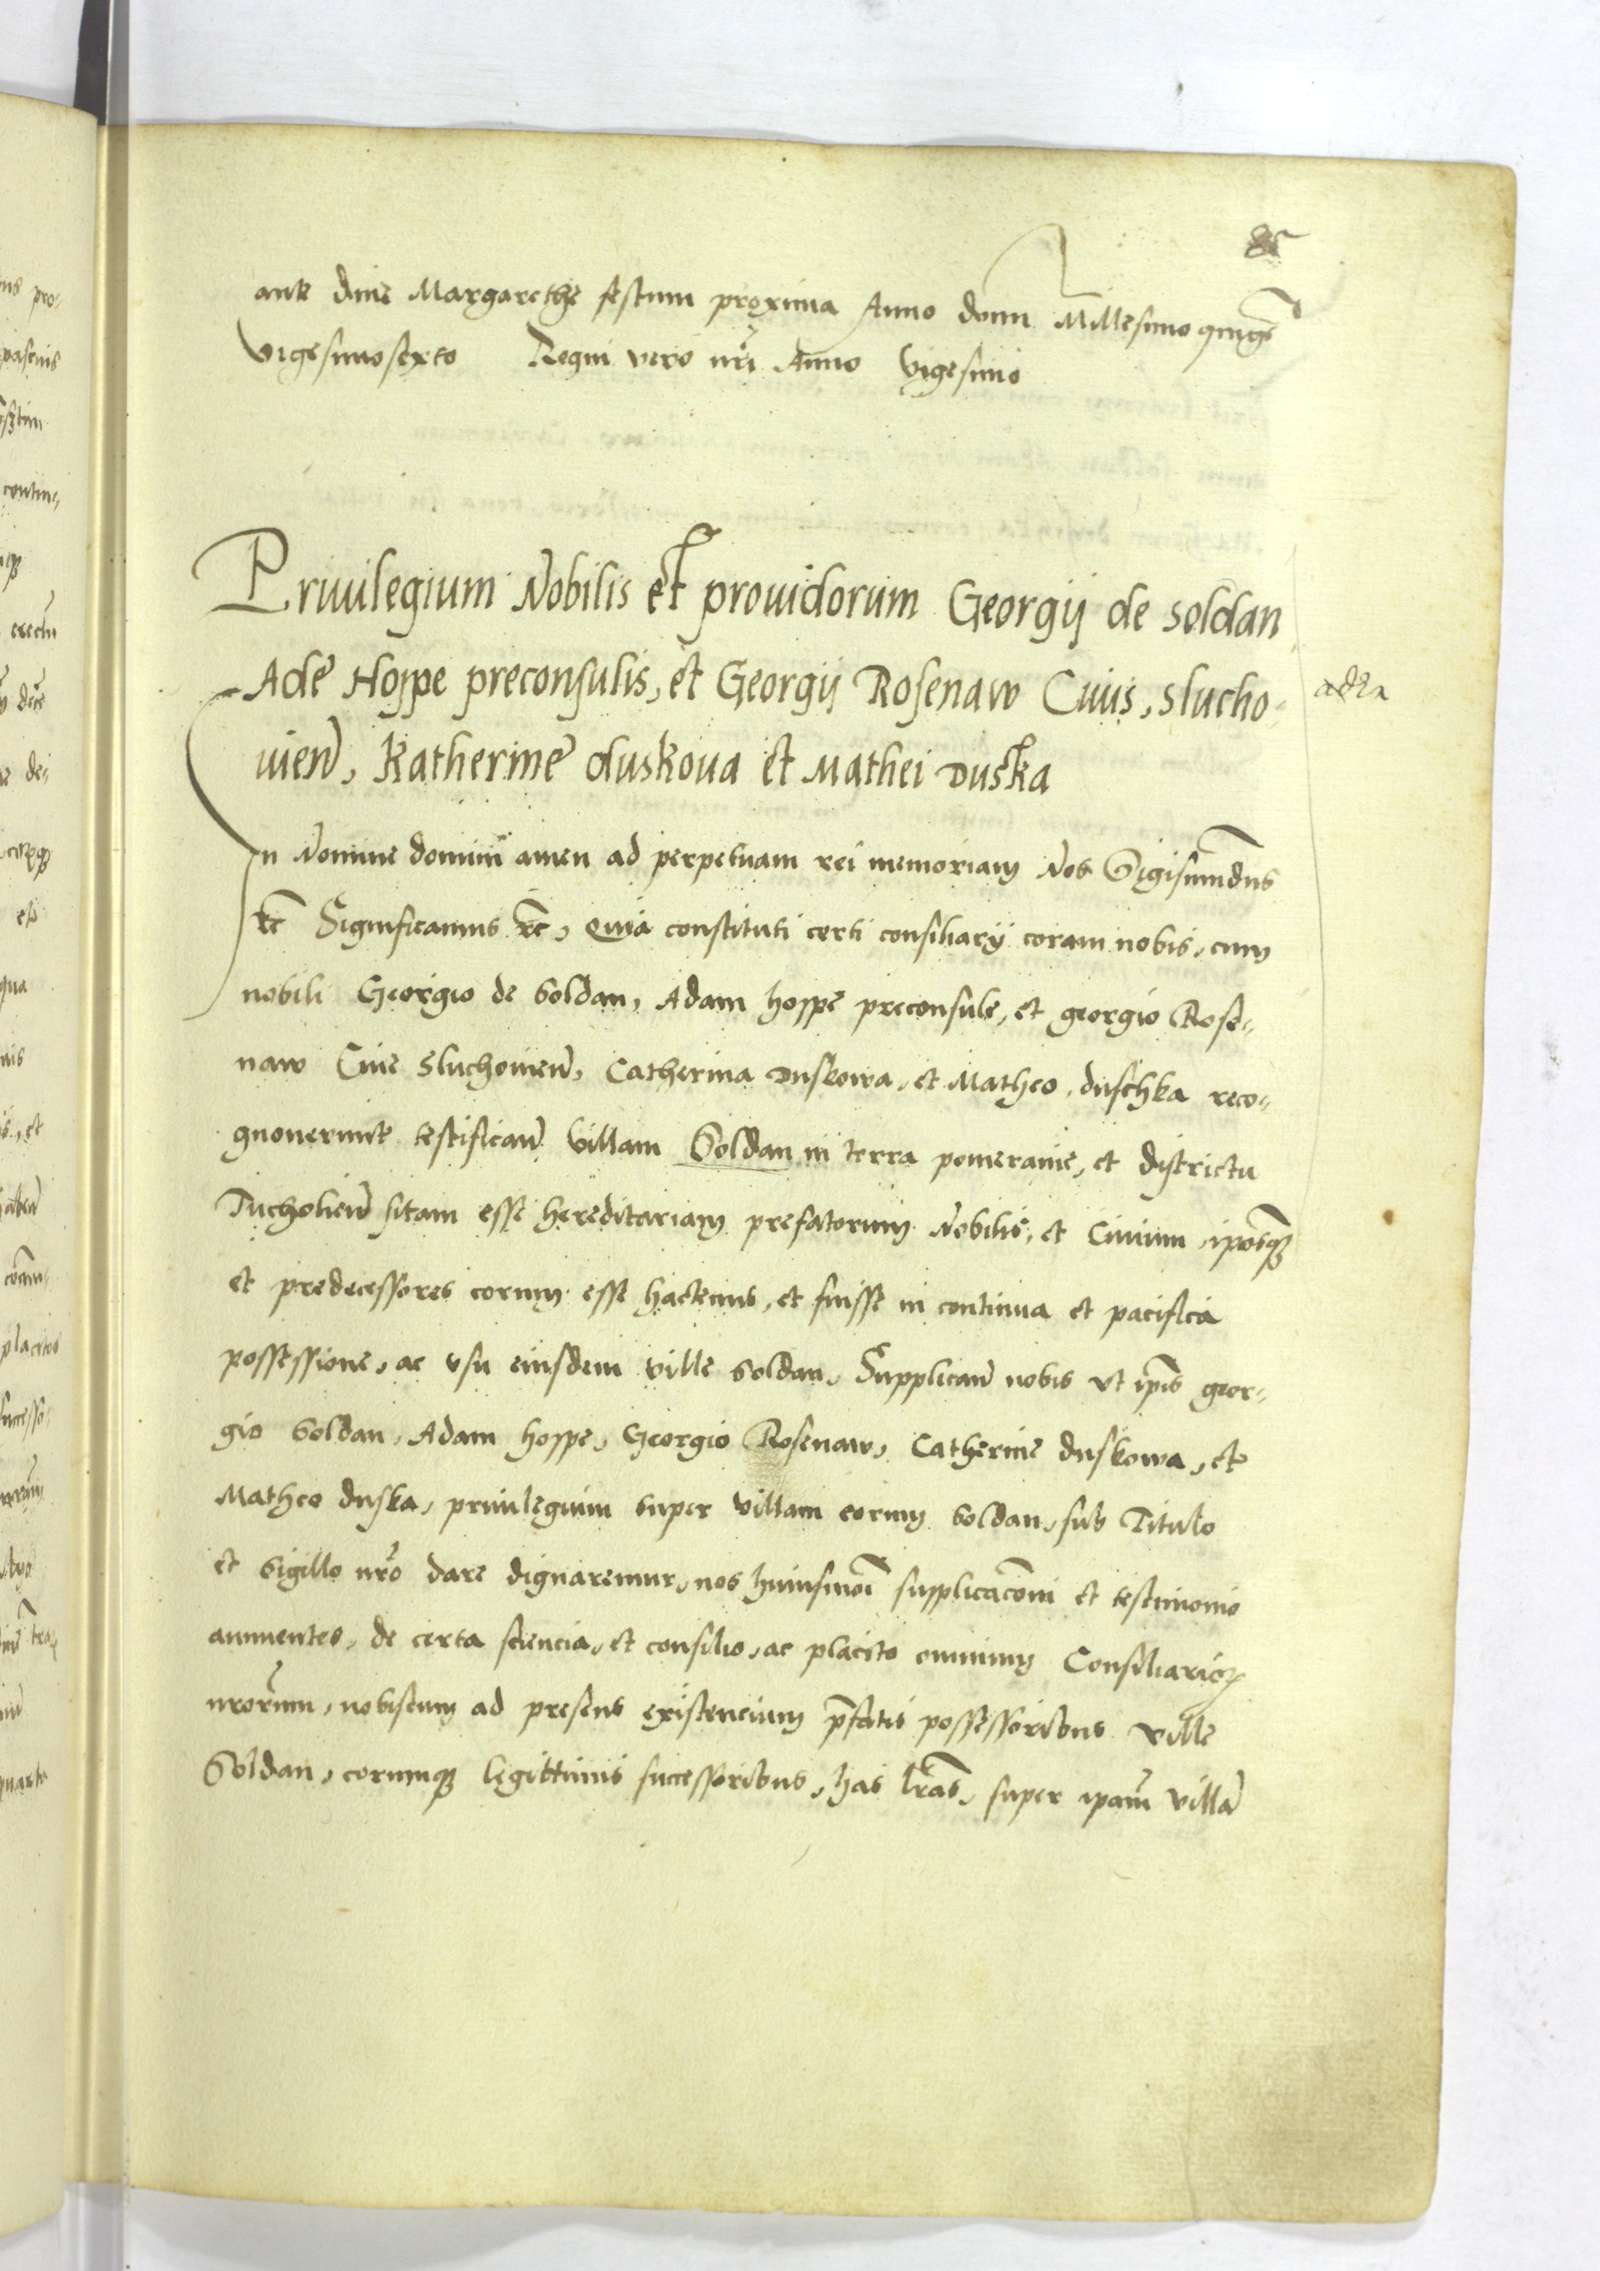 ante diue Margarethe festum proxima Anno domi Millesimo quinge
vigesimosexto Regni vero nri Anno Vigesimo
Priuilegium Nobilis et prouidorum Georgij de soldan
Ade Hoppe preconsulis, et Georgij Rosenaw Ciuis, slucho-
uien, Katherine duskoua et Mathei Duska
adza
In Nomine domini amen ad perpetuam rei memoriam Nos Sigismundus
etc Significamus etc, Quia constituti certi consiliarij coram nobis, cum
nobili Georgio de Soldan, Adam hoppe preconsule, et georgio Rose-
naw Ciue Sluchouien, Catherina Duskowa, et Matheo duschka reco-
gnouerunt testifican villam Soldan in terra pomeranie, et districtu
Tucholien sitam esse hereditariam prefatorum Nobilis, et Ciuium, iposque
et predecessores eorum esse hactenus, et fuisse in continua et pacifica
possessione, ac vsu eiusdem ville Soldan, Supplican nobis vt ipis geor-
gio Soldan, Adam hoppe, Georgio Rosenaw, Catherine duskowa, et
Matheo duska, priuilegium super villam eorum Soldan, sub Titulo
et Sigillo nro dare dignaremur, nos huiusmoi supplicacioni et testimonio
annuentes, de certa sciencia, et consilio, ac placito omnium Consiliariorum
nrorum, nobiscum ad presens existencium pfatis possessoribus ville
Soldan, eorumque legittimis successoribus, has lras, super ipam villa